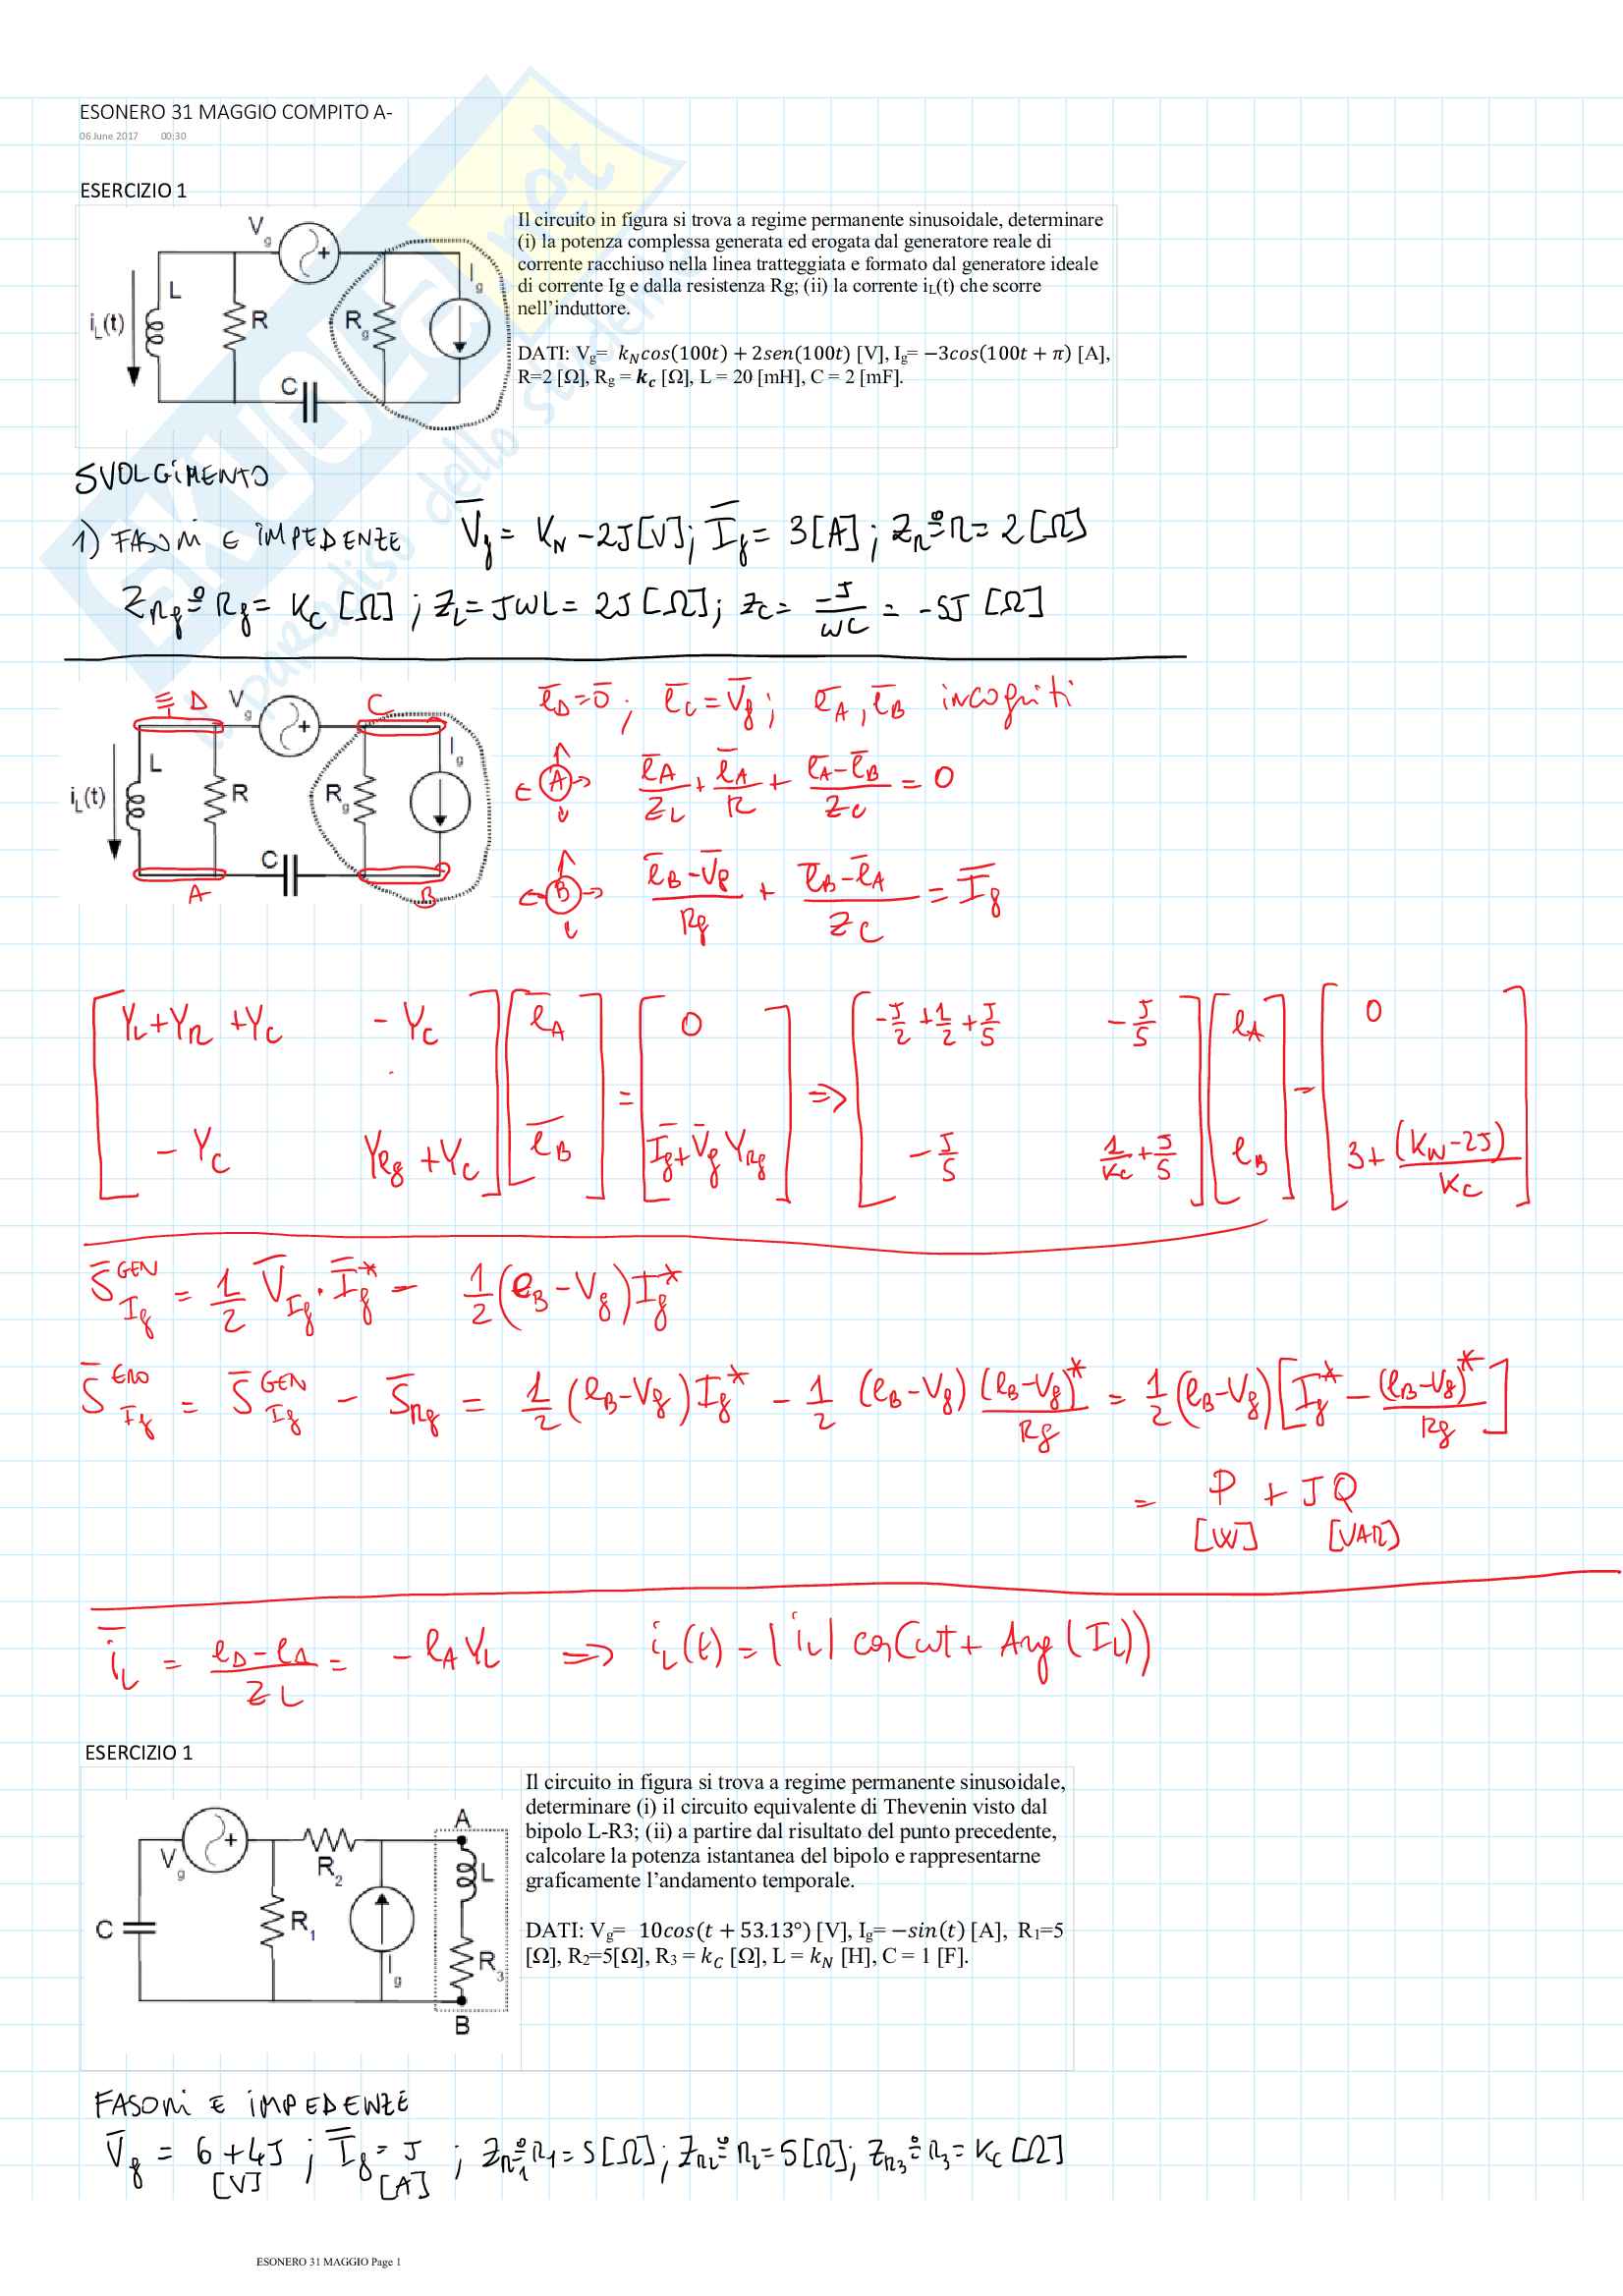 ESONERO 31 MAGGIO COMPITO A-
06 June 2017 00:30
ESERCIZIO 1
Il circuito in figura si trova a regime permanente sinusoidale, determinare
(i) la potenza complessa generata ed erogata dal generatore reale di
corrente racchiuso nella linea tratteggiata e formato dal generatore ideale
di corrente Ig e dalla resistenza Rg; (ii) la corrente iL(t) che scorre
nell'induttore.
DATI: Vg= kNcos(100t) + 2sen(100t) [V], Ig= −3cos(100t + π) [A],
R=2 [Ω], Rg = kc [Ω], L = 20 [mH], C = 2 [mF].
Vg + L R Rg Ig iL(t) C
SVOLGIMENTO
1) FASORI E IMPEDENZE V̄g = KN −2J[V]; Īg = 3[A]; ZR ≗ R = 2[Ω]
ZRg ≗ Rg = KC [Ω]; ZL = JWL = 2J [Ω]; ZC = −J/WC = −5J [Ω]
D Vg + C L R Rg Ig iL(t) C A B
ēD = 0̄; ēC = V̄g; ēA, ēB incogniti
A ēA/ZL + ēA/R + (ēA−ēB)/ZC = 0
B (ēB−V̄g)/Rg + (ēB−ēA)/ZC = Īg
[YL+YR+YC −YC] [ēA] = [0] => [−J/2+1/2+J/5 −J/5] [eA] = [0]
[−YC YRg+YC] [ēB] [Īg+V̄g YRg] [−J/5 1/KC+J/5] [eB] [3+(KN−2J)/KC]
S̄Ig GEN = 1/2 V̄Ig · Īg* = 1/2 (eB−Vg) Ig*
S̄Ig ERO = S̄Ig GEN − S̄Rg = 1/2 (eB−Vg) Ig* − 1/2 (eB−Vg) (eB−Vg)*/Rg = 1/2 (eB−Vg) [Ig* − (eB−Vg)*/Rg]
= P + JQ
[W] [VAR]
īL = (eD−eA)/ZL = −eA YL => iL(t) = |iL| cos(wt + Arg(IL))
ESERCIZIO 1
Il circuito in figura si trova a regime permanente sinusoidale,
determinare (i) il circuito equivalente di Thevenin visto dal
bipolo L-R3; (ii) a partire dal risultato del punto precedente,
calcolare la potenza istantanea del bipolo e rappresentarne
graficamente l'andamento temporale.
DATI: Vg= 10cos(t + 53.13°) [V], Ig= −sin(t) [A], R1=5
[Ω], R2=5[Ω], R3 = kC [Ω], L = kN [H], C = 1 [F].
Vg + R2 A L C R1 Ig R3 B
FASORI E IMPEDENZE
V̄g = 6+4J [V]; Īg = J [A]; ZR1 ≗ R1 = 5[Ω]; ZR2 ≗ R2 = 5[Ω]; ZR3 ≗ R3 = KC [Ω]
ESONERO 31 MAGGIO Page 1